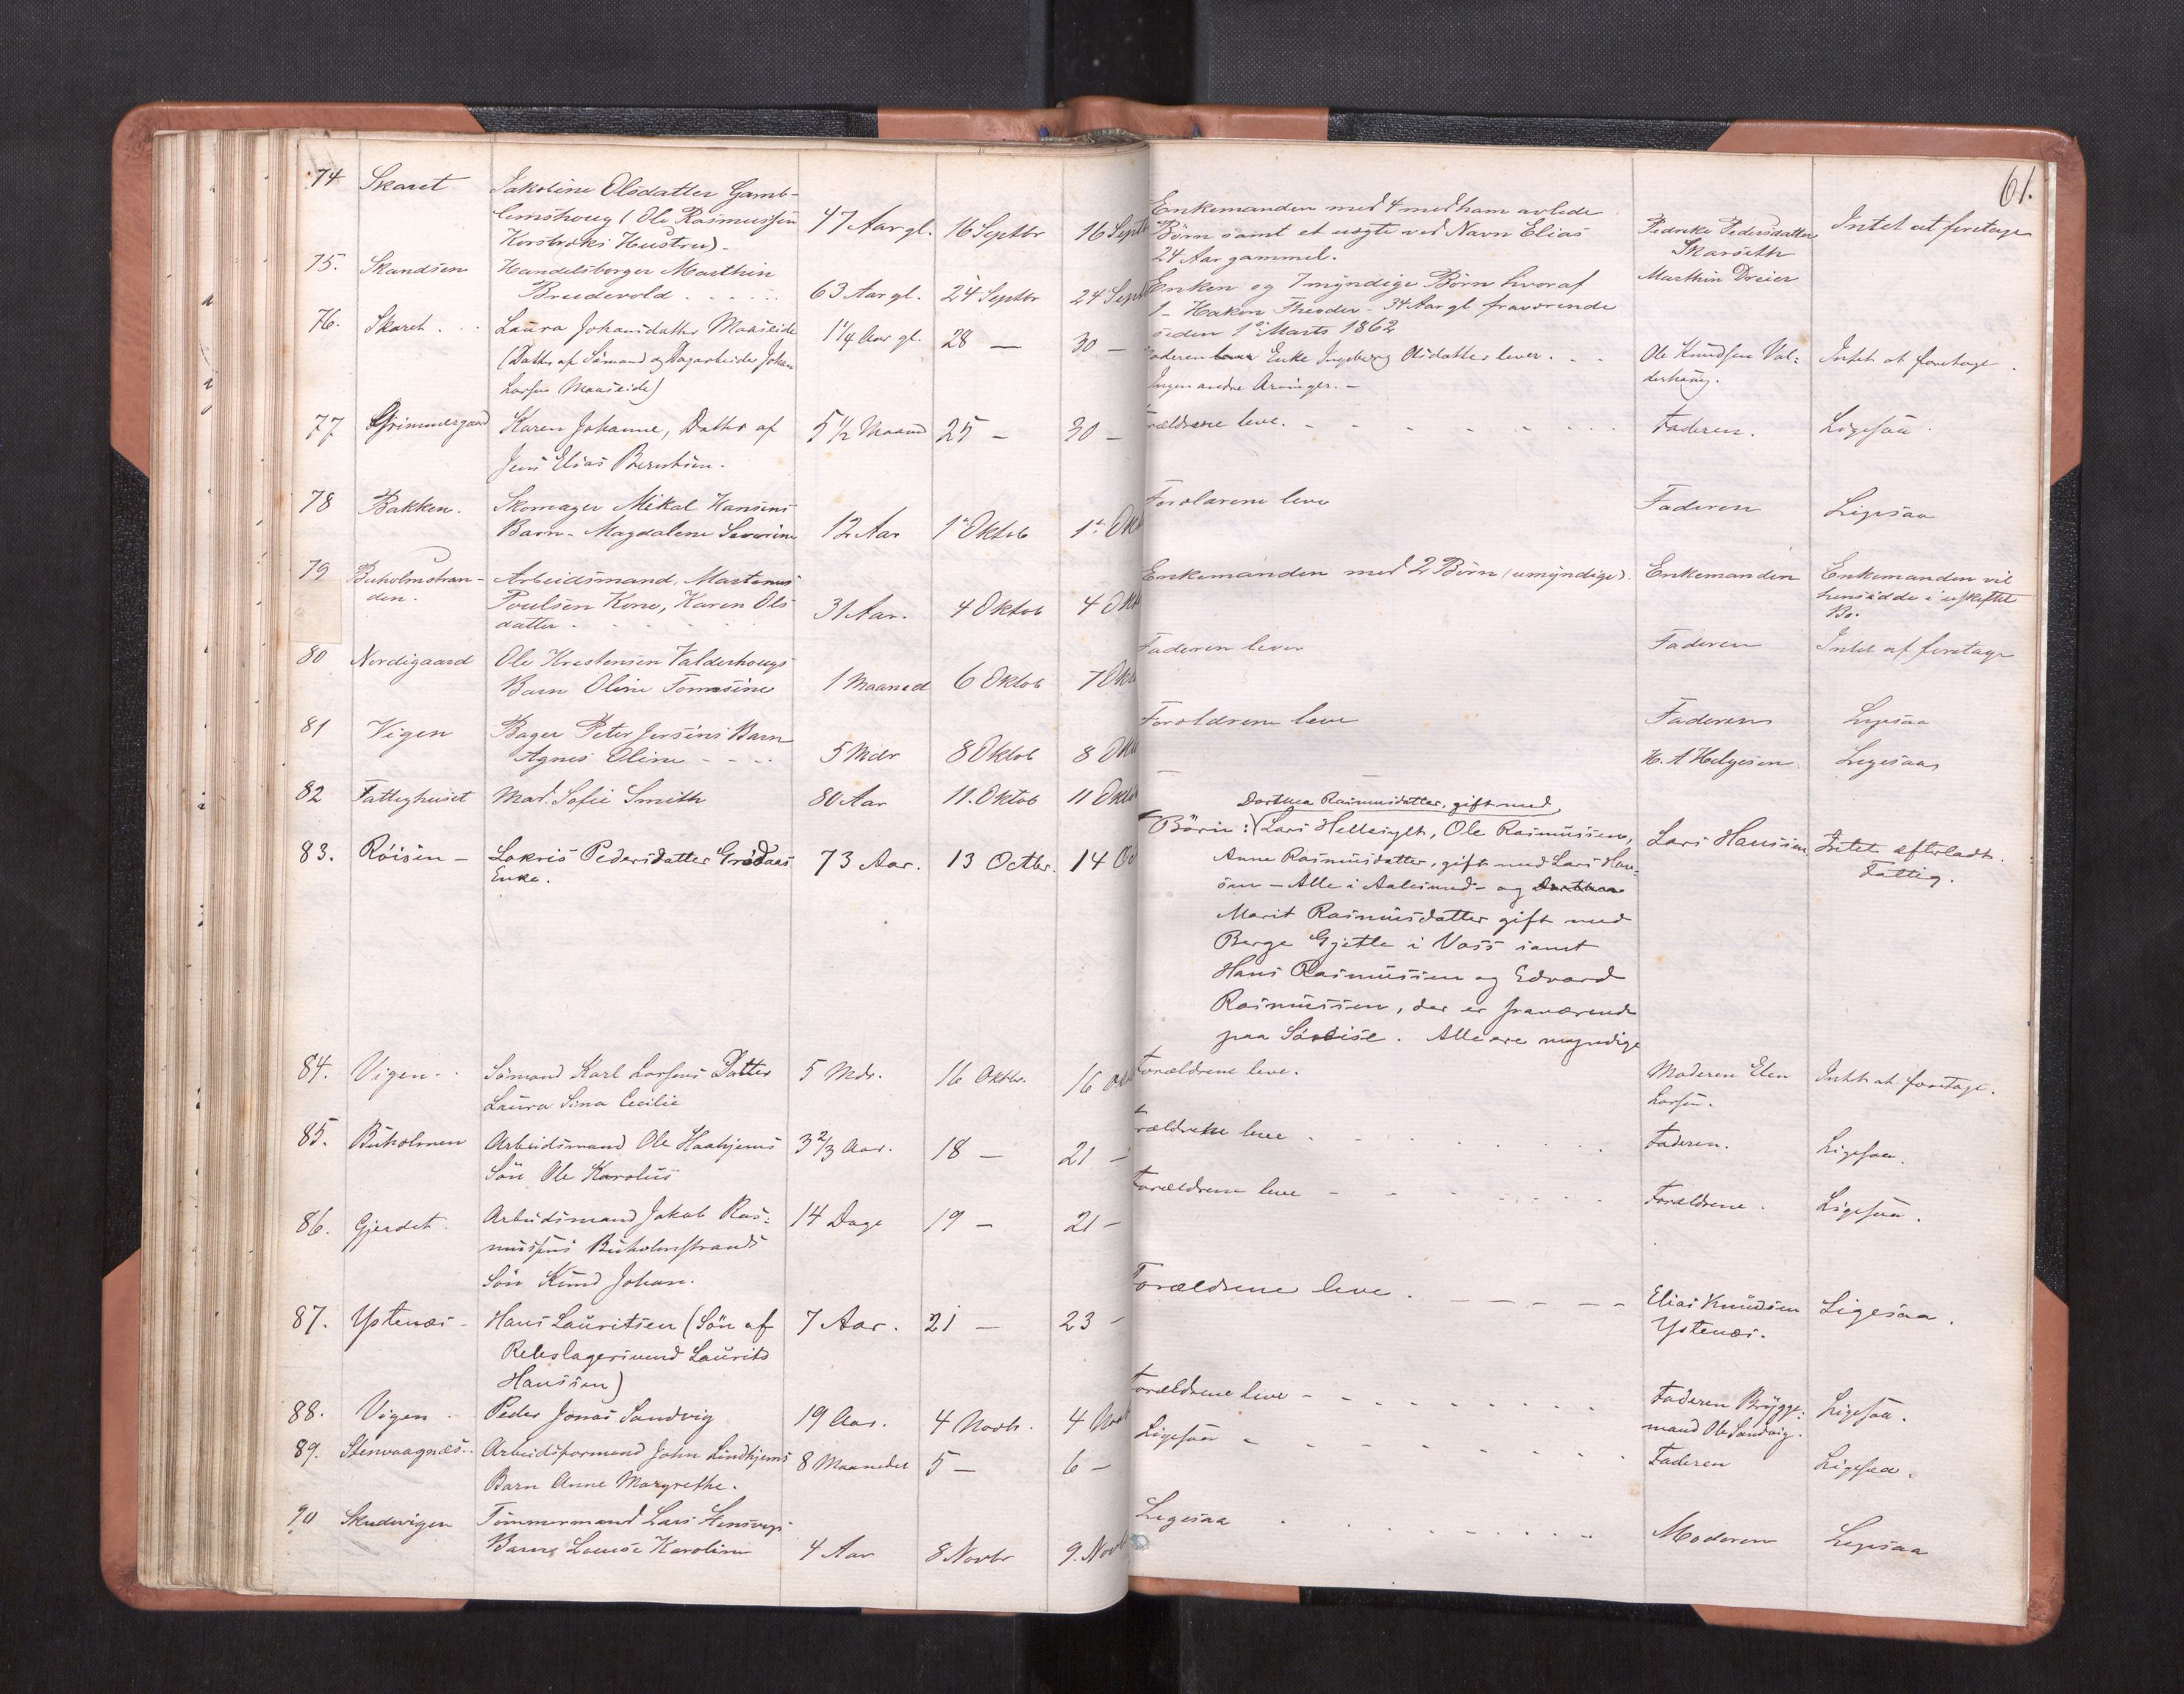 61.
74 Skaret Jakobine Olsdatter Gamb-
lemshoug (Ole Rasmussen 47 Aar gl. 16 Septbr 16 Septb
Hustru).
Enkemanden med 4 med ham avlede
Børn samt et uægte ved Navn Elias
24 Aar gammel.
Pedersdatter
Skarseth
Intet at foretage
75. Skandsen Handelsborger Marthin
Brudevold 63 Aar gl. 24 Septbr 24 Septb
Enken og 7 myndige Børn hvoraf
1 - Hakon Theodor - 34 Aar gl fraværende
siden 1ste Marts 1862
Marthin Dreier
76. Skaret Laura Johansdatter Maaseide 1 1/4 Aar gl. 28 — 30 —
(Datter af Sömand og Dagarbeider Johan
Larsen Maaseide)
Faderens Enke Ingeberg Olsdatter lever.
Ingen andre Arvinger. —
Ole Knudsen Val-
derhoug.
Intet at foretage.
77 Grimmergaard Karen Johanne, Datter af 5 1/2 Maaned 25 — 30 —
Jens Elias Berntsen.
Forældrene leve.
Faderen.
Ligesaa.
78 Bakken. Skomager Mikal Hansens
Barn - Magdalene Severine 12 Aar 1ste Oktob 1ste Okt
Forældrene leve
Faderen
Ligesaa
79 Buholmstran-
den.
Arbeidsmand, Martinus
Poulsen Kone, Karen Ols
datter 31 Aar. 4 Oktob 4 Okt
Enkemanden med 2 Börn (umyndige).
Enkemanden
Enkemanden vil
hensidde i uskiftet
Bo.
80 Nordigaard Ole Kristensen Valderhougs
Barn Oline Tomasine 1 Maaned 6 Oktob 7 Okt
Faderen lever
Faderen
Intet at foretage
81 Vigen Bager Peter Jensens Barn
Agnes Oline 5 Mdr 8 Oktob 8 Okt
Forældrene leve
Faderen
Ligesaa
82 Fattighuset Mad. Sofie Smith 80 Aar 11. Oktob 11 Oktob
H. A Helgesen
Ligesaa
83. Röisen — Lokris Pedersdatter Grødaas 73 Aar. 13 Octbr. 14 Oc
Enke.
Dorthea Rasmusdatter, gift med
Börn: Lars Hellesylt, Ole Rasmussen,
Anne Rasmusdatter, gift med Lars Han-
sen — Alle i Aalesund - og Dorthea
Marit Rasmusdatter gift med
Berge Gjetle i Voss samt
Hans Rasmussen og Edvard
Rasmussen, der er fraværende
paa Söreise. Alle ere myndige
Lars Hanssen
Intet efterladt.
Fattig.
84. Vigen Sömand Karl Larsens Datter 5 Mdr. 16 Oktbr. 16 Okt
Laura Sina Cecilie
Forældrene leve.
Moderen Elen
Larsen.
Intet at foretage.
85. Buholmen Arbeidsmand Ole Haahjems 3 2/3 Aar. 18 — 21 —
Sön Ole Karolus
Forældrene leve
Faderen.
Ligesaa.
86. Gjerdet. Arbeidsmand Jakob Ras- 14 Dage 19 — 21 —
mussens Buholmstrands
Sön Knud Johan.
Forældrene leve
Forældrene.
Ligesaa.
87. Ystenæs — Hans Lauritsen (Sön af 7 Aar. 21 — 23 —
Rebslagersvend Laurits
Hanssen)
Forældrene leve.
Elias Knudsen
Ystenæs.
Ligesaa.
88. Vigen Peder Jonas Sandvig 19 Aar. 4 Novb. 4 Novb
Forældrene leve
Faderen Brygge-
mand Ole Sandvig.
Ligesaa.
89. Stenvaagnæs. Arbeidsformand John Lindhjems 8 Maaneder 5 — 6 —
Barn Anne Margrethe.
Ligesaa
Faderen
Ligesaa.
90 Skudevigen Tömmermand Lars
Barn, Louise Karoline 4 Aar 8 Novbr 9. Novb
Ligesaa
Moderen
Ligesaa